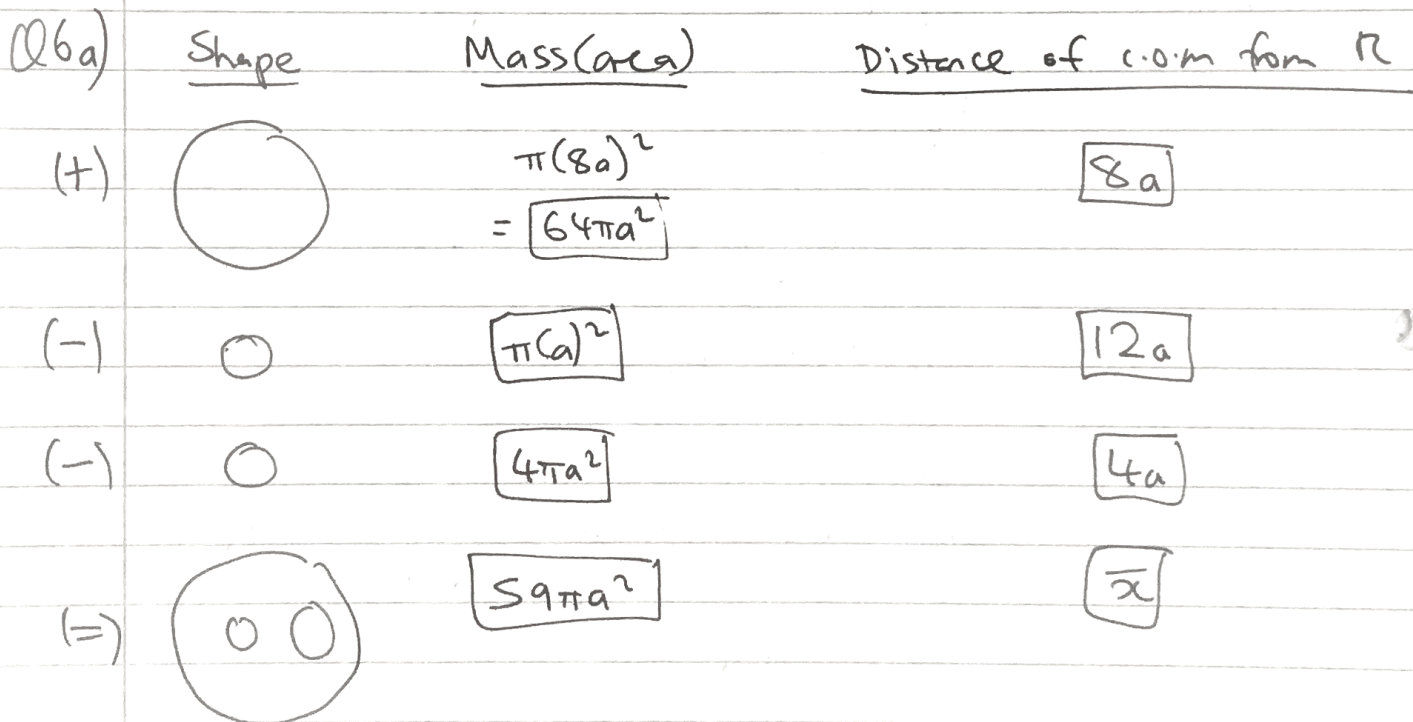 Q6a) Shape Mass(area) Distance of c.o.m from R
(+) π(8a)² 8a
= 64πa²
(-) π(a)² 12a
(-) 4πa² 4a
(=) 59πa² x̅